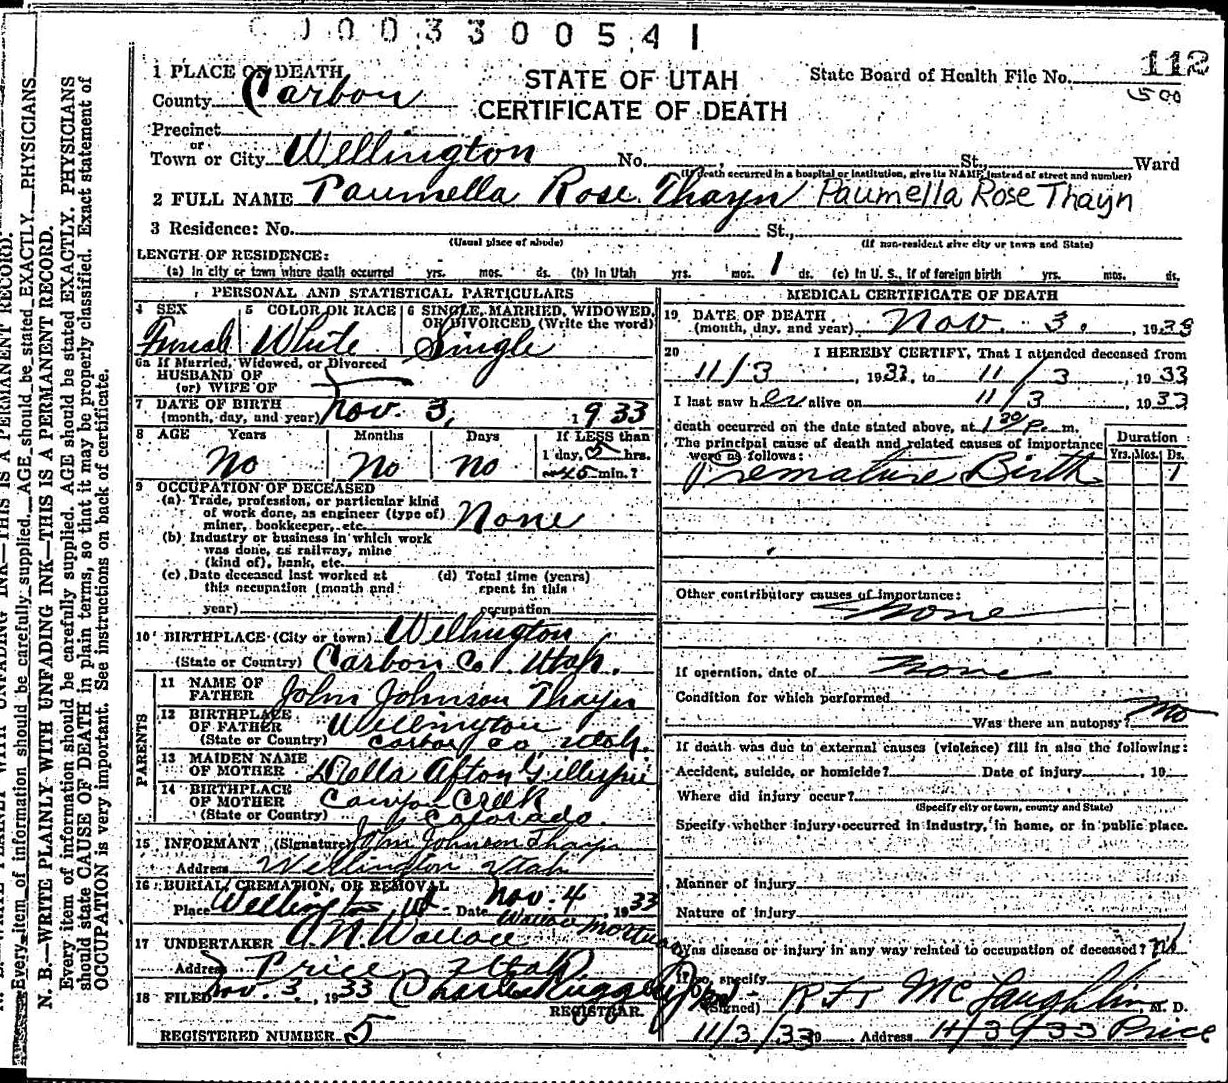 C J 0 0 3 3 0 0 5 4 1
112
500
1 PLACE OF DEATH
County Carbon
STATE OF UTAH
CERTIFICATE OF DEATH
State Board of Health File No.
Precinct
or
Town or City Wellington No. , St., Ward
(If death occurred in a hospital or institution, give its NAME instead of street and number)
2 FULL NAME Paumella Rose Thayn Paumella Rose Thayn
3 Residence: No. St.,
(Usual place of abode) (If non-resident give city or town and State)
LENGTH OF RESIDENCE:
(a) In city or town where death occurred yrs. mos. ds. (b) In Utah yrs. mos. 1 ds. (c) In U. S., if of foreign birth yrs. mos. ds.
PERSONAL AND STATISTICAL PARTICULARS
4 SEX Female
5 COLOR OR RACE White
6 SINGLE, MARRIED, WIDOWED, OR DIVORCED, (Write the word) Single
6a If Married, Widowed, or Divorced
HUSBAND OF
(or) WIFE OF
7 DATE OF BIRTH
(month, day, and year) Nov. 3, 1933
8 AGE Years Months Days If LESS than
No No No 1 day, 5 hrs.
or 45 min.?
9 OCCUPATION OF DECEASED
(a) Trade, profession, or particular kind
of work done, as engineer (type of)
miner, bookkeeper, etc. None
(b) Industry or business in which work
was done, as railway, mine
(kind of), bank, etc.
(c) Date deceased last worked at (d) Total time (years)
this occupation (month and spent in this
year) occupation
10 BIRTHPLACE (City or town) Wellington
(State or Country) Carbon Co. Utah.
PARENTS
11 NAME OF
FATHER John Johnson Thayn
12 BIRTHPLACE
OF FATHER Wellington
(State or Country) Carbon Co Utah.
13 MAIDEN NAME
OF MOTHER Della Afton Gillespie
14 BIRTHPLACE
OF MOTHER Canyon Creek
(State or Country) Colorado.
15 INFORMANT (Signature) John Johnson Thayn
Address Wellington Utah
16 BURIAL, CREMATION, OR REMOVAL
Place Wellington, Ut Date Nov. 4, 1933
Wallace Mortuary
17 UNDERTAKER A. N. Wallace
Address Price Utah
18 FILED Nov. 3, 1933 Charles Ruggeri
REGISTRAR.
REGISTERED NUMBER 5
MEDICAL CERTIFICATE OF DEATH
19 DATE OF DEATH
(month, day, and year) Nov. 3. , 1933
20 I HEREBY CERTIFY, That I attended deceased from
11/3 , 1933, to 11/3 , 1933
I last saw her alive on 11/3 , 1933
death occurred on the date stated above, at 1 30/P. m.
The principal cause of death and related causes of importance
were as follows:
Duration
Yrs. Mos. Ds.
Premature Birth 1
Other contributory causes of importance:
None
If operation, date of None
Condition for which performed
Was there an autopsy? No
If death was due to external causes (violence) fill in also the following:
Accident, suicide, or homicide? Date of injury , 19
Where did injury occur?
(Specify city or town, county and State)
Specify whether injury occurred in industry, in home, or in public place.
Manner of injury
Nature of injury
Was disease or injury in any way related to occupation of deceased? no
If so, specify
(Signed) McLaughlin M. D.
11/3/33 Address 11/3/33 Price
N. B.—WRITE PLAINLY WITH UNFADING INK—THIS IS A PERMANENT RECORD.
Every item of information should be carefully supplied. AGE should be stated EXACTLY. PHYSICIANS
should state CAUSE OF DEATH in plain terms, so that it may be properly classified. Exact statement of
OCCUPATION is very important. See instructions on back of certificate.
Every item of information should be carefully supplied. AGE should be stated EXACTLY. PHYSICIANS